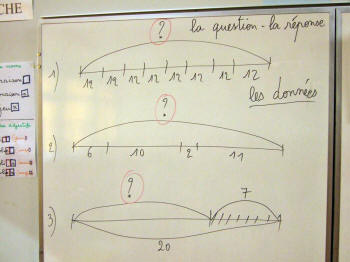 CHE
? la question - la réponse
1) 12 12 12 12 12 12 12 12
les données
?
2) 6 10 2 11
? 7
3)
20